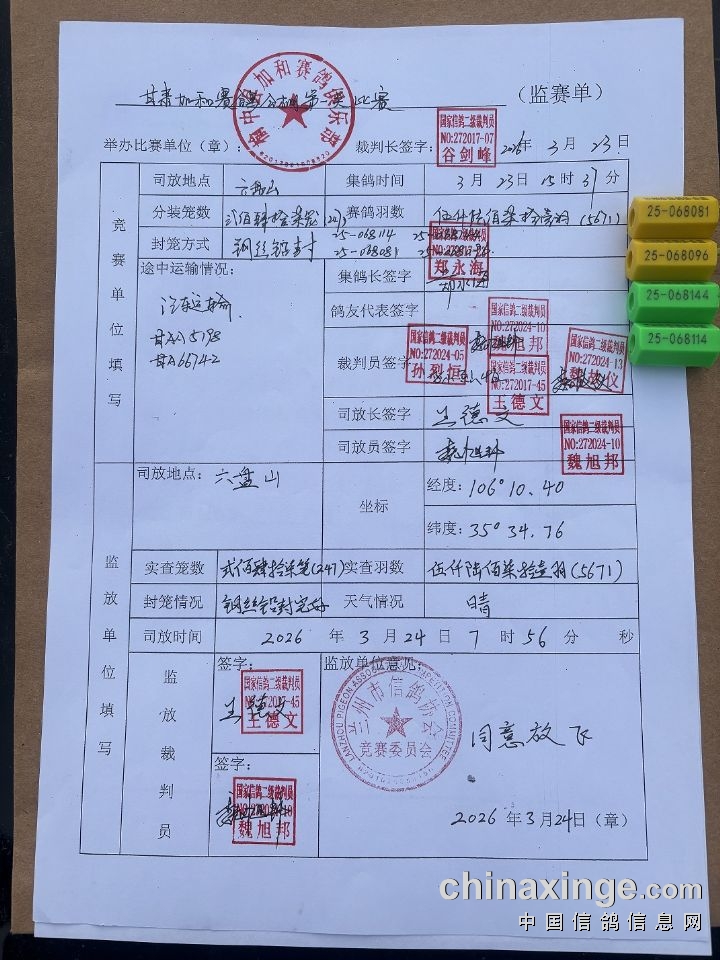 甘肃加和赛鸽公棚第一关比赛（监赛单）
举办比赛单位（章）： 裁判长签字： 2026年3月23日
国家信鸽二级裁判员
NO:272017-07
谷剑峰
竞赛单位填写
司放地点 六盘山 集鸽时间 3月23日15时37分
分装笼数 贰佰肆拾柒笼(247) 赛鸽羽数 伍仟陆佰柒拾壹羽(5671)
封笼方式 钢丝铅封 25-068114 25-068081
途中运输情况： 集鸽长签字
国家信鸽二级裁判员
郑永海
汽车运输
甘AA5198
甘A66742
鸽友代表签字
裁判员签字
国家信鸽二级裁判员
NO:272024-10
魏旭邦
国家信鸽二级裁判员
NO:272024-05
孙烈恒
国家信鸽二级裁判员
NO:272017-45
王德文
国家信鸽二级裁判员
NO:272024-13
司放长签字 王德文
司放员签字
国家信鸽二级裁判员
NO:272024-10
魏旭邦
监放单位填写
司放地点： 六盘山 坐标 经度：106°10.40
纬度：35°34.76
实查笼数 贰佰肆拾柒笼(247) 实查羽数 伍仟陆佰柒拾壹羽(5671)
封笼情况 钢丝铅封完好 天气情况 晴
司放时间 2026年3月24日7时56分 秒
监放裁判员
签字： 王德文
国家信鸽二级裁判员
NO:272017-45
王德文
签字：
国家信鸽二级裁判员
魏旭邦
监放单位意见：
兰州市信鸽协会
竞赛委员会
同意放飞
2026年3月24日（章）
25-068081
25-068096
25-068144
25-068114
chinaxinge.com
中国信鸽信息网